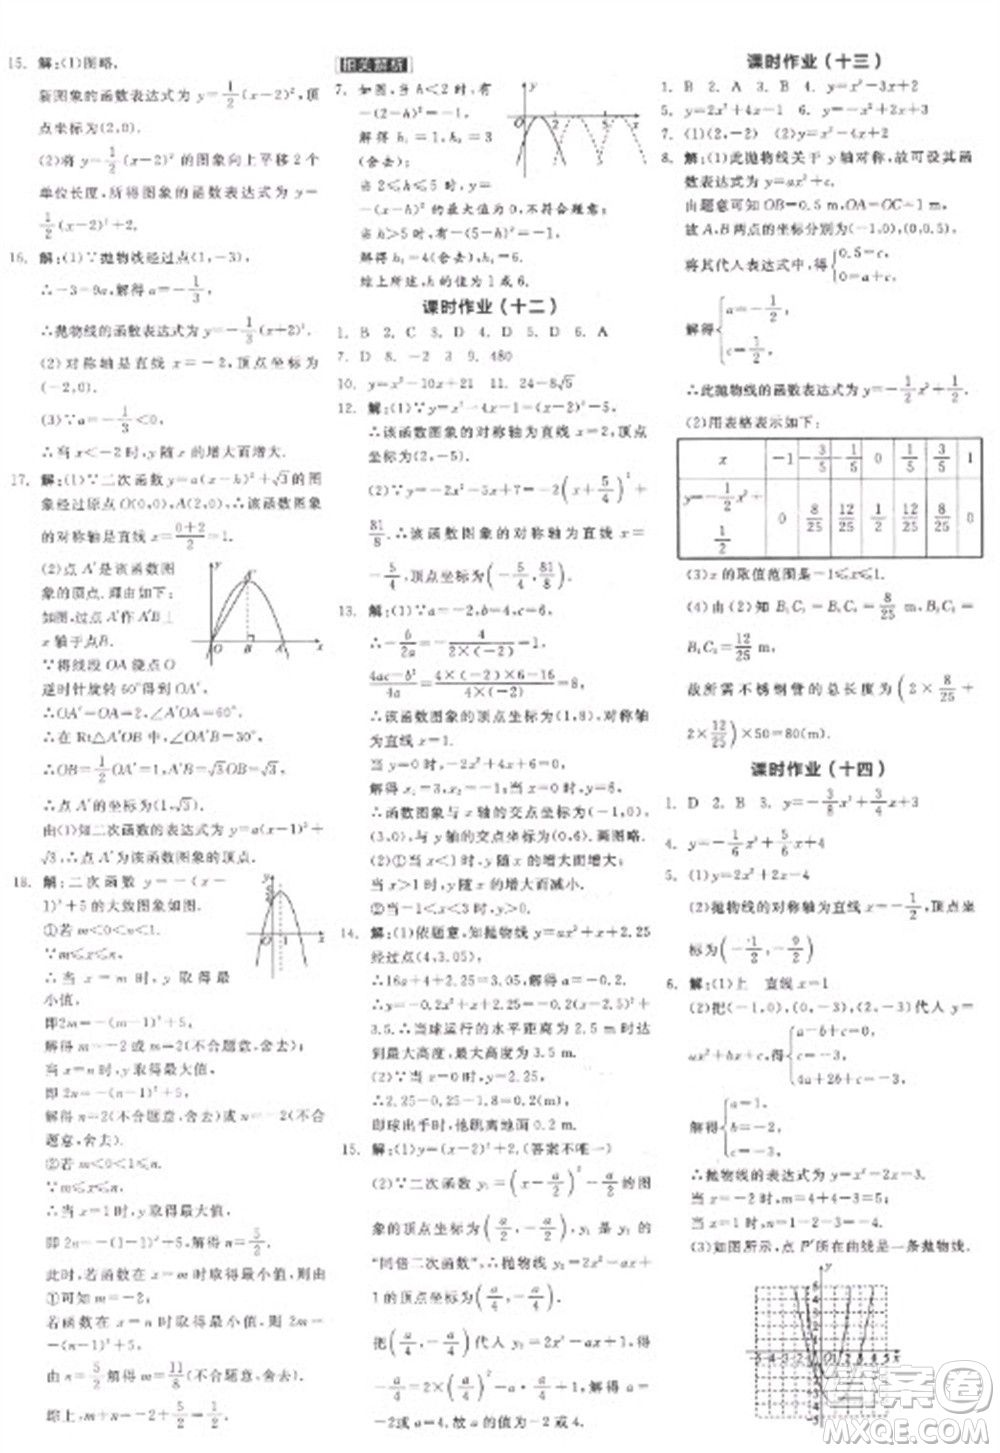 15. 解:(1)图略,
新图象的函数表达式为 y=1/2(x-2)²,顶
点坐标为(2,0).
(2)将 y=1/2(x-2)² 的图象向上平移 2 个
单位长度,所得图象的函数表达式为 y=
1/2(x-2)²+2.
16. 解:(1)∵抛物线经过点(1,-3),
∴-3=9a,解得 a=-1/3,
∴抛物线的函数表达式为 y=-1/3(x+2)².
(2)对称轴是直线 x=-2,顶点坐标为
(-2,0).
(3)∵a=-1/3<0,
∴当 x<-2 时,y 随 x 的增大而增大.
17. 解:(1)∵二次函数 y=a(x-h)²+√3的图
象经过原点 O(0,0),A(2,0),∴该函数图象
的对称轴是直线 x=(0+2)/2=1.
(2)点 A′是该函数图
象的顶点. 理由如下:
如图,作 A′B⊥
x 轴于点B.
∵将线段 OA 绕点 O
逆时针旋转 60°得到 OA′,
∴OA′=OA=2,∠A′OA=60°.
∴在 Rt△A′OB 中,∠OA′B=30°,
∴OB=1/2OA′=1,A′B=√3OB=√3,
∴点 A′的坐标为(1,√3).
由(1)知二次函数的表达式为 y=a(x-1)²+
√3,∴点 A′为该函数图象的顶点.
18. 解:二次函数 y=-(x-
1)²+5 的大致图象如图.
①若 m<0<n<1,
∵m≤x≤n,
∴当 x=m 时,y 取得最
小值,
即2m=-(m-1)²+5,
解得 m=-2(m=2不合题意,舍去).
当 x=n 时,y 取得最大值,
即2n=-(n-1)²+5,
解得 n=2(不合题意,舍去)或 n=-2(不合
题意,舍去).
②若 m<0<1≤n,
∵m≤x≤n,
∴当 x=1 时,y 取得最大值,
即 2n=5,解得 n=5/2.
此时,若函数在 x=m 时取得最小值,则由
①可知 m=-2;
若函数在 x=n 时取得最小值,则x=n=5/2,
由 n=5/2,解得 m=11/8(不合题意,舍去).
综上,m=-2,n=5/2,∴m+n=1/2.
相关解析
7. 如图,当 h<2 时,有
-(2-h)²=-1,
解得 h₁=1,h₂=3
(舍去);
当 2≤h≤5 时,y=
-(x-h)² 的最大值为 0,不符合题意;
当 h>5 时,有-(5-h)²=-1,
解得 h₃=4(舍去),h₄=6.
综上所述,h 的值为 1 或 6.
课时作业(十二)
1. B 2. C 3. D 4. D 5. D 6. A
7. D 8. -2 3 9. 480
10. y=x²-10x+21 11. 24-8√5
12. 解:(1)∵y=x²-4x-1=(x-2)²-5,
∴该函数图象的对称轴为直线 x=2,顶点
坐标为(2,-5).
(2)∵y=-2x²-5x+7=-2(x+5/4)²+
81/8,∴该函数图象的对称轴为直线 x=
-5/4,顶点坐标为(-5/4,81/8).
13. 解:(1)∵a=-2,b=4,c=6,
∴-b/2a=-4/(2×(-2))=1,
(4ac-b²)/4a=(4×(-2)×6-16)/(4×(-2))=8,
∴该函数图象的顶点坐标为(1,8),对称轴
为直线 x=1.
当 y=0 时,-2x²+4x+6=0,
解得 x₁=3,x₂=-1.
当 x=0 时,y=6.
∴函数图象与 x 轴的交点坐标为(-1,0),
(3,0),与 y 轴的交点坐标为(0,6). 画图略.
(2)①当 x<1 时,y 随 x 的增大而增大;
当 x>1 时,y 随 x 的增大而减小.
②当-1<x<3 时,y>0.
14. 解:(1)依题意,知抛物线 y=ax²+x+2.25
经过点(4,3.05),
∴16a+4+2.25=3.05,解得 a=-0.2,
∴y=-0.2x²+x+2.25=-0.2(x-2.5)²+
3.5.∴当球运行的水平距离为 2.5 m 时,达
到最大高度,最大高度为 3.5 m.
(2)∵当 x=0 时,y=2.25,
∴2.25-0.25-1.8=0.2(m),
即球出手时,他距离地面 0.2 m.
15. 解:(1)y=(x-2)²+1.(答案不唯一)
课时作业(十三)
1. B 2. A 3. D 4. y=x²-3x+2
5. y=2x²+4x-1 6. y=-x²+2x+3
7. (1)(2,-2) (2)y=x²-4x+2
8. 解:(1)此抛物线关于 y 轴对称,故可设其函
数表达式为 y=ax²+c.
由题意可知 OB=0.5 m,OA=OC=1 m,
故 A,B 两点的坐标分别为(-1,0),(0,0.5),
将其代入表达式,得 {0.5=c, 0=a+c,
解得 {a=-1/2, c=1/2,
∴此抛物线的函数表达式为 y=-1/2x²+1/2.
(2)用表格表示如下:
x -1 -3/5 -1/5 0 1/5 3/5 1
y=-1/2x²+1/2 0 8/25 12/25 1/2 12/25 8/25 0
(3)x 的取值范围是-1≤x≤1.
故所需不锈钢管的总长度为(2×8/25+
2×12/25)×50=80(m).
课时作业(十四)
1. D 2. B 3. y=-3/8x²+3/4x+3
4. y=-1/6x²+5/6x+4
5. (1)y=2x²+2x-4
(2)抛物线的对称轴为直线 x=-1/2,顶点坐
标为(-1/2,-9/2)
6. 解:(1)上 直线 x=1
(2)把(-1,0),(0,-3),(2,-3)代入 y=
ax²+bx+c,得 {a-b+c=0, c=-3, 4a+2b+c=-3,
解得 {a=1, b=-2, c=-3,
∴抛物线的表达式为 y=x²-2x-3.
当 x=-2 时,m=4+4-3=5;
当 x=1 时,n=1-2-3=-4.
答案圈